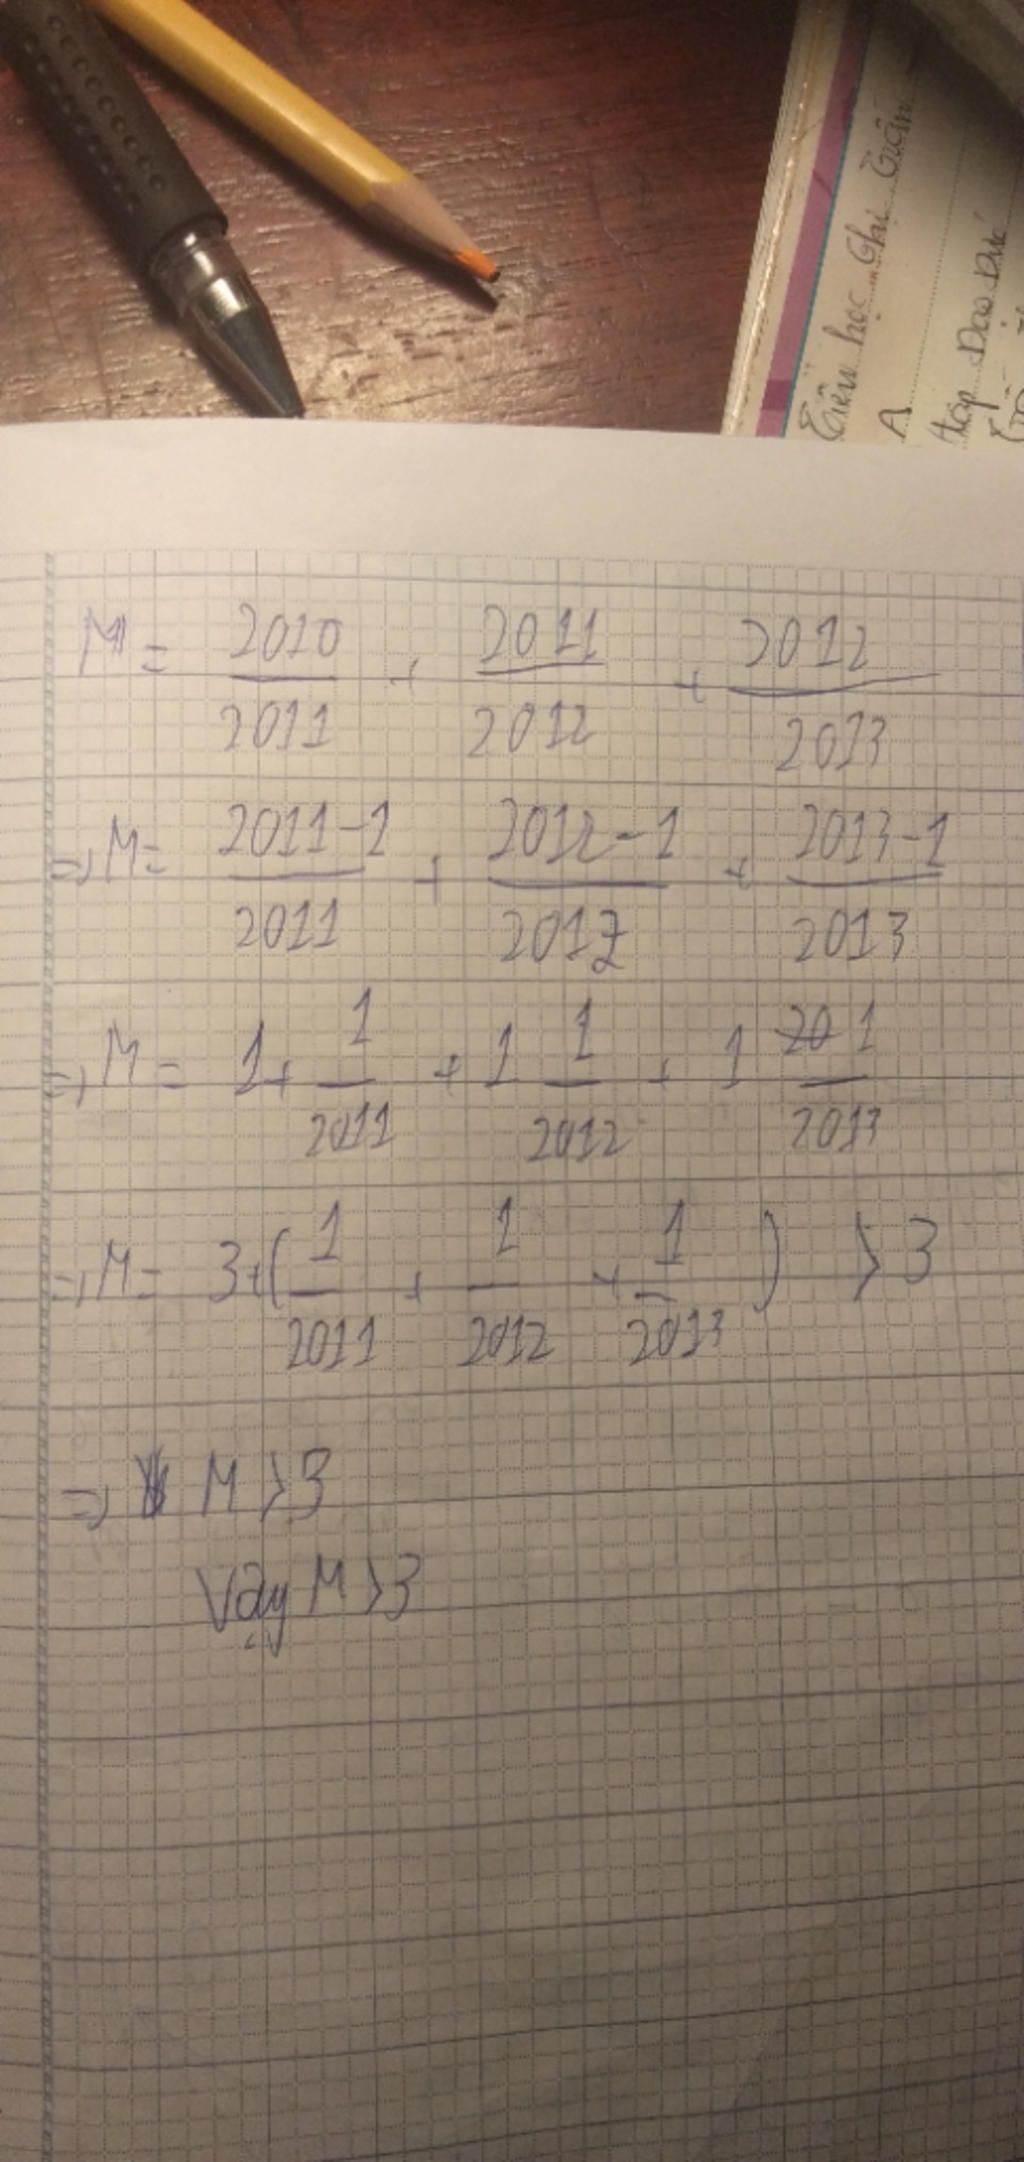 Tiên học Chi Tuân
A
tập Đạo Đức
M = 2010/2011 + 2011/2012 + 2012/2013
=> M = 2011-1/2011 + 2012-1/2012 + 2013-1/2013
=> M = 1 + 1/2011 + 1 1/2012 + 1 1/2013
=> M = 3 + (1/2011 + 1/2012 + 1/2013) > 3
=> M > 3
Vậy M > 3